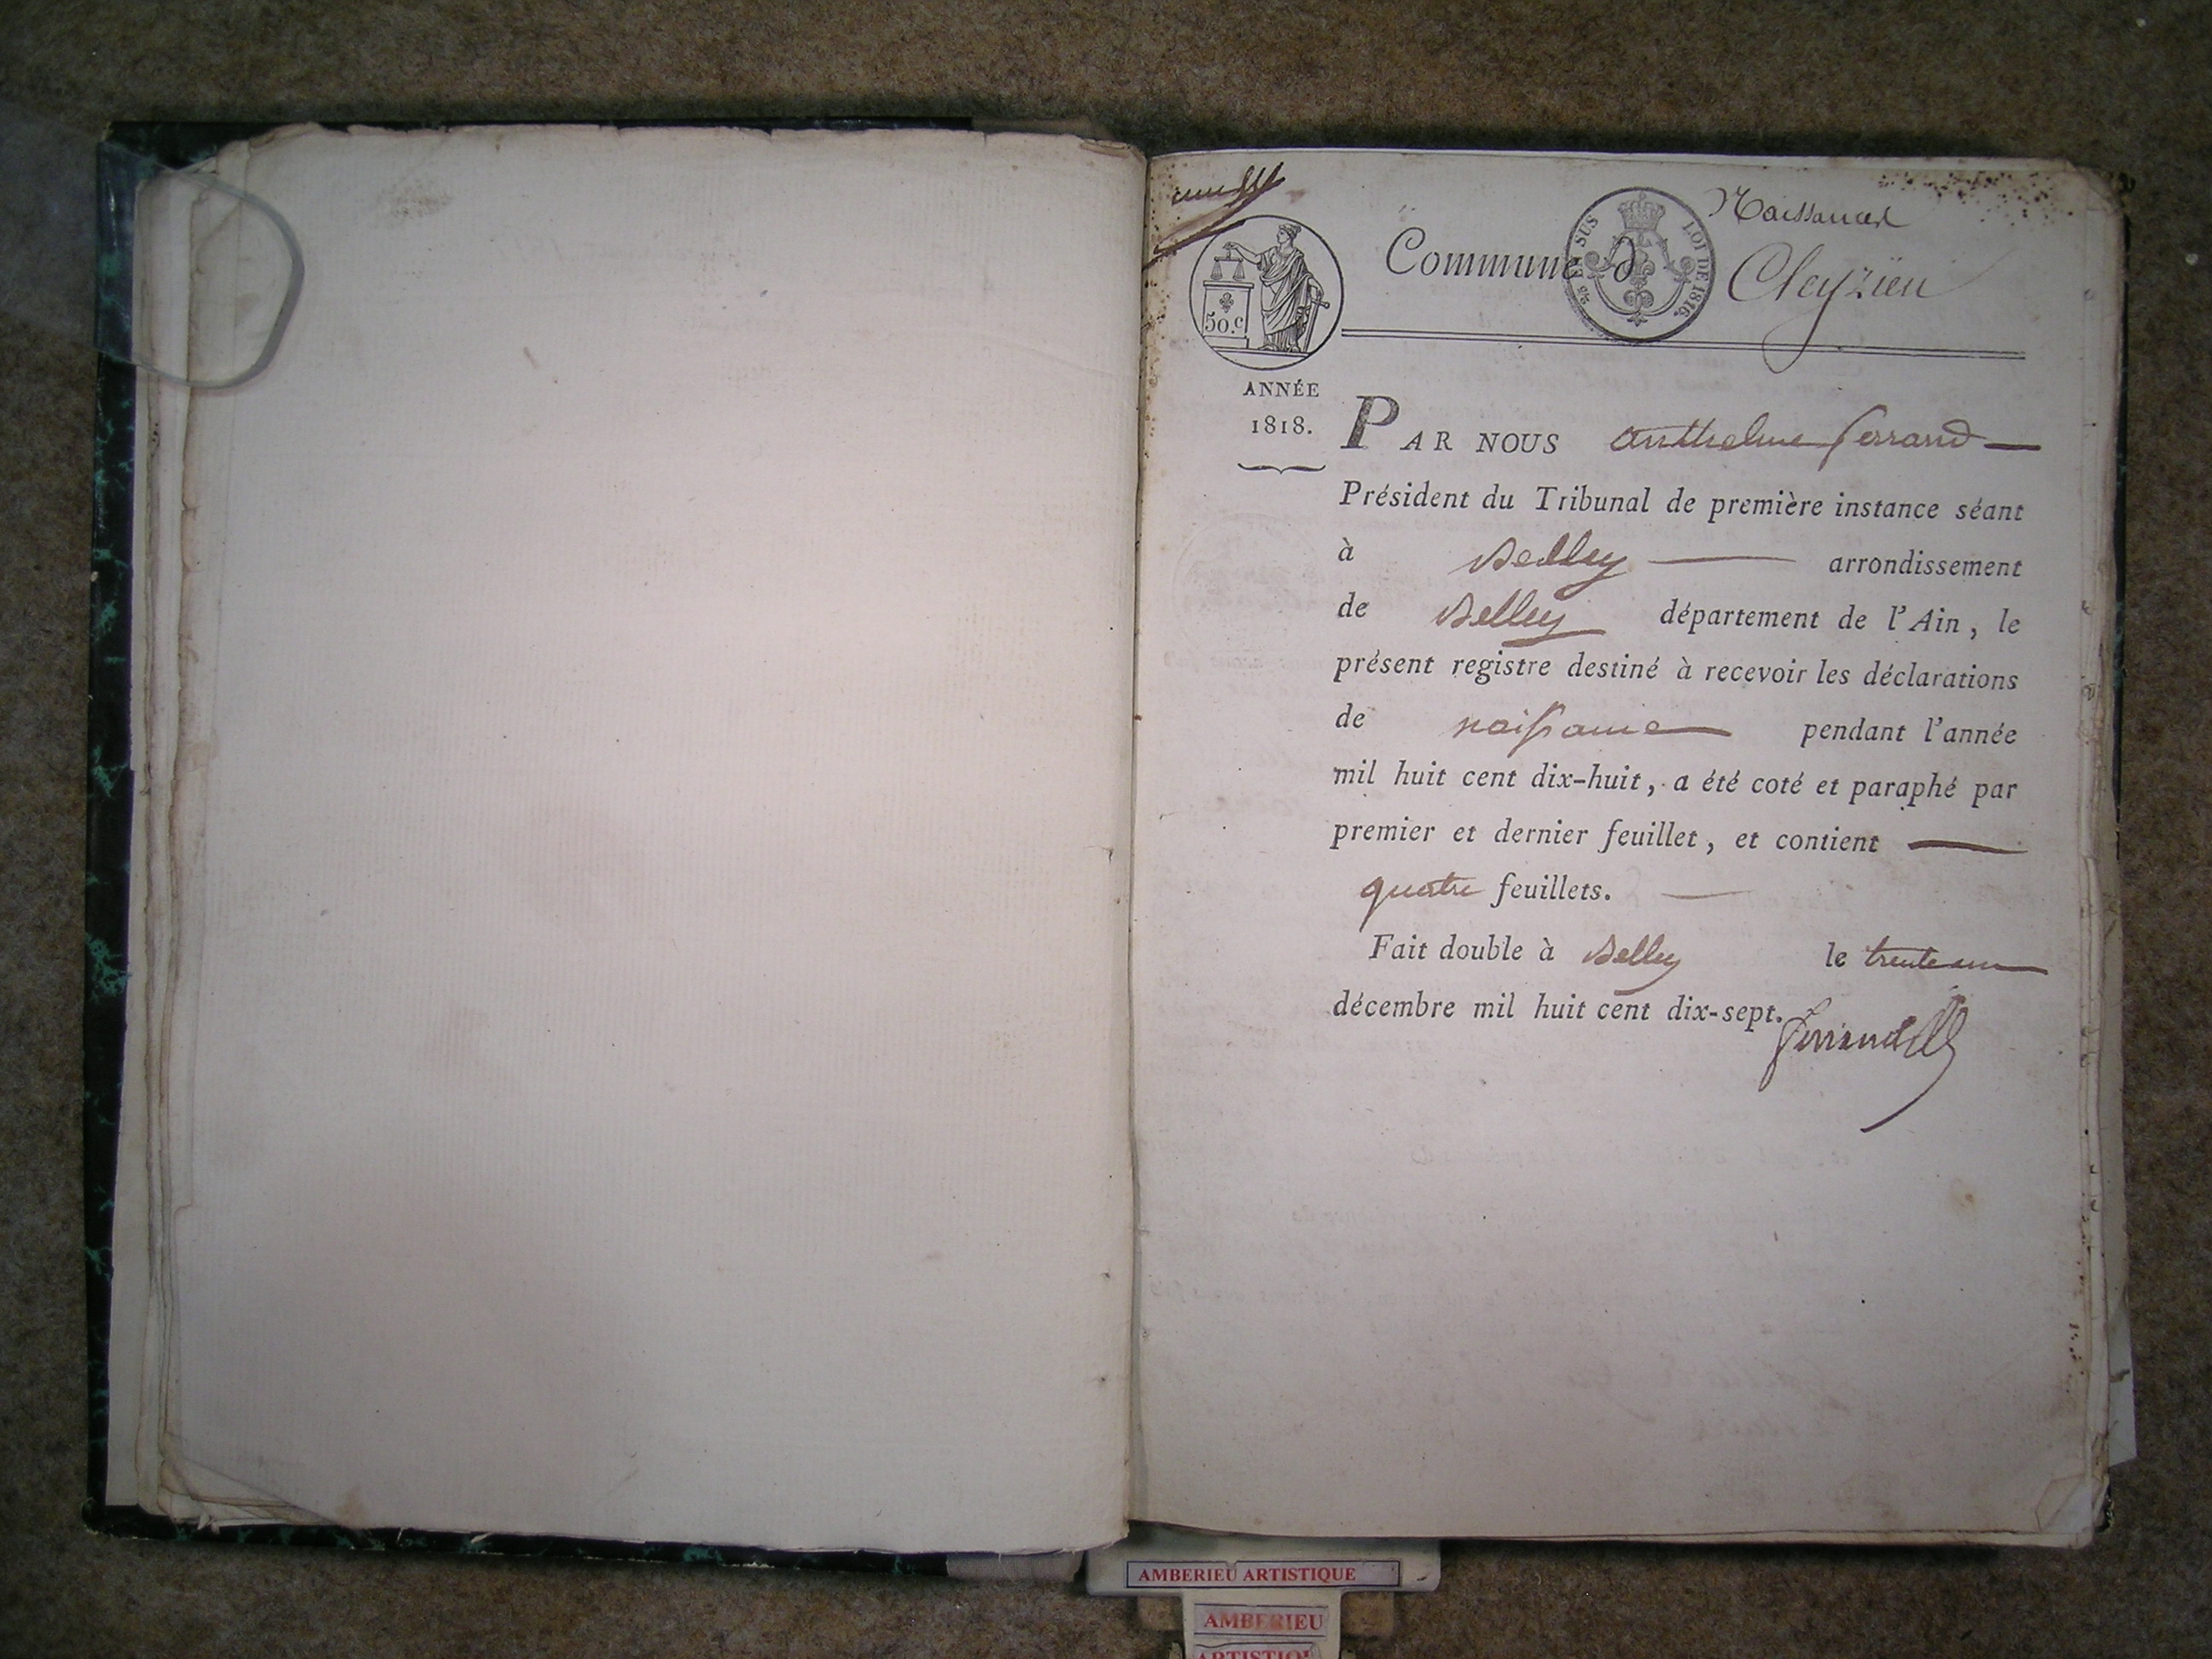 Naissances
Commune d Cleyzieu
EN SUS
LOI DE 1816.
50.c
ANNÉE
1818.
PAR NOUS anthelme ferrand
Président du Tribunal de première instance séant
à Belley arrondissement
de Belley département de l'Ain, le
présent registre destiné à recevoir les déclarations
de naissance pendant l'année
mil huit cent dix-huit, a été coté et paraphé par
premier et dernier feuillet, et contient
quatre feuillets.
Fait double à Belley le trente un
décembre mil huit cent dix-sept.
ferrand
AMBERIEU ARTISTIQUE
AMBERIEU